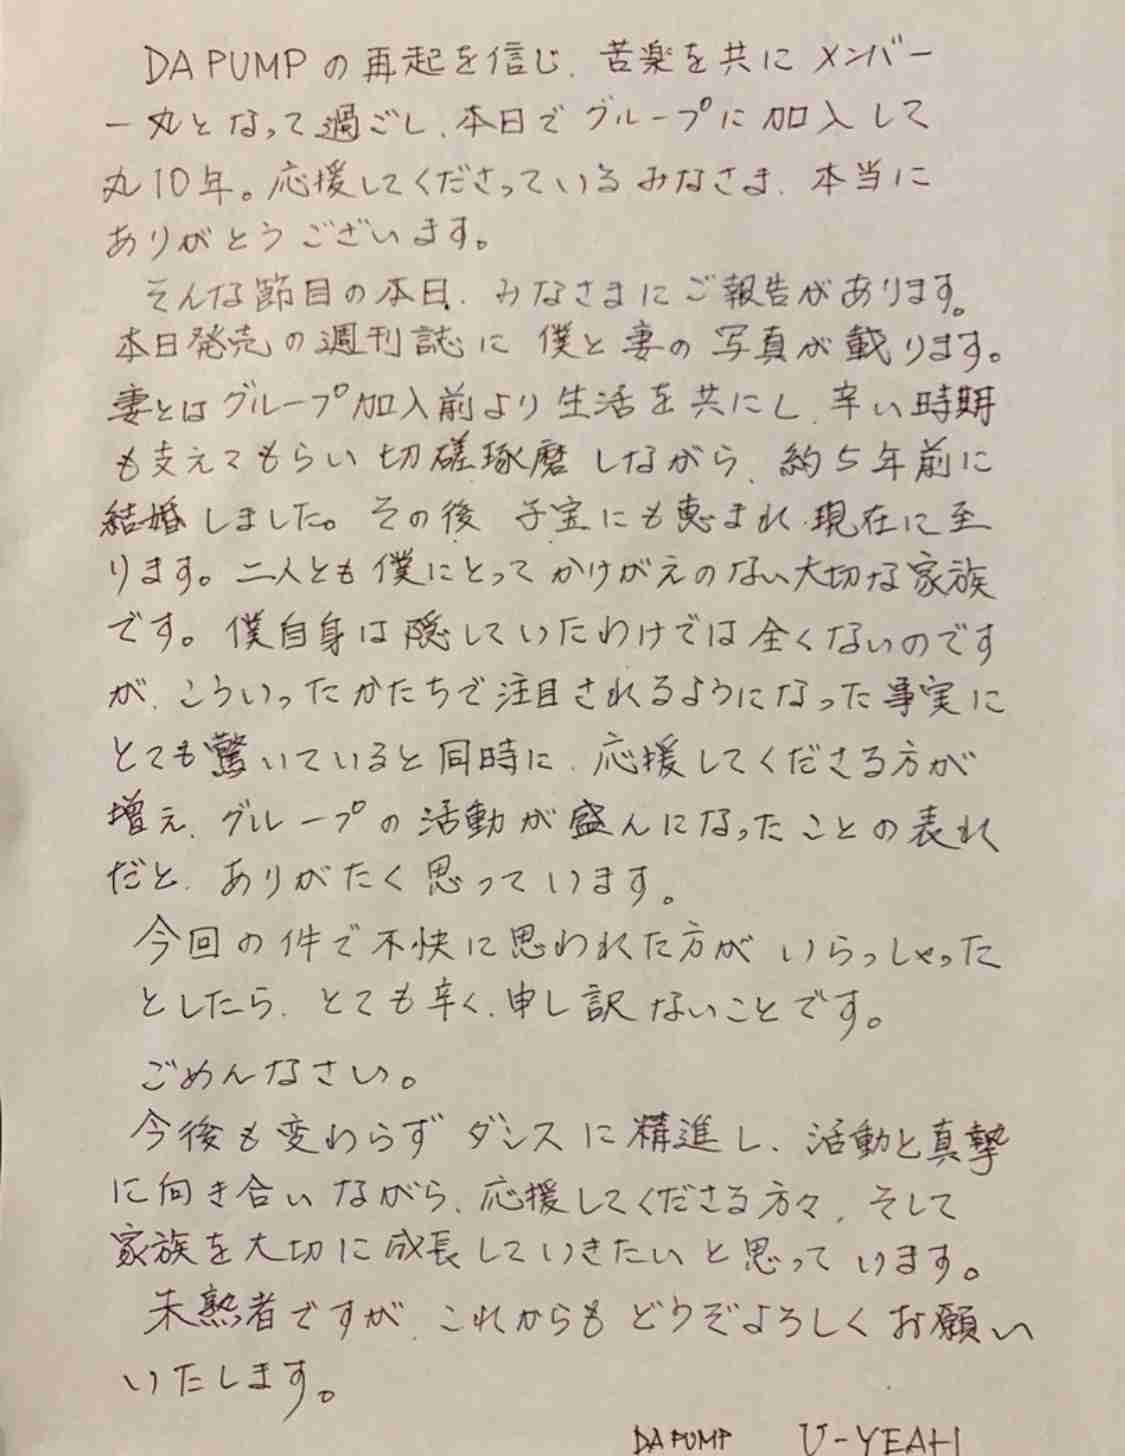 DA PUMPの再起を信じ、苦楽を共にメンバー
一丸となって過ごし、本日でグループに加入して
丸10年。応援してくださっているみなさま、本当に
ありがとうございます。
そんな節目の本日、みなさまにご報告があります。
本日発売の週刊誌に僕と妻の写真が載ります。
妻とはグループ加入前より生活を共にし、辛い時期
も支えてもらい切磋琢磨しながら、約5年前に
結婚しました。その後子宝にも恵まれ、現在に至
ります。二人とも僕にとってかけがえのない大切な家族
です。僕自身は隠していたわけでは全くないのです
が、こういったかたちで注目されるようになった事実に
とても驚いていると同時に、応援してくださる方が
増え、グループの活動が盛んになったことの表れ
だと、ありがたく思っています。
今回の件で不快に思われた方がいらっしゃった
としたら、とても辛く、申し訳ないことです。
ごめんなさい。
今後も変わらずダンスに精進し、活動と真摯
に向き合いながら、応援してくださる方々、そして
家族を大切に成長していきたいと思っています。
未熟者ですが、これからもどうぞよろしくお願い
いたします。
DA PUMP U-YEAH